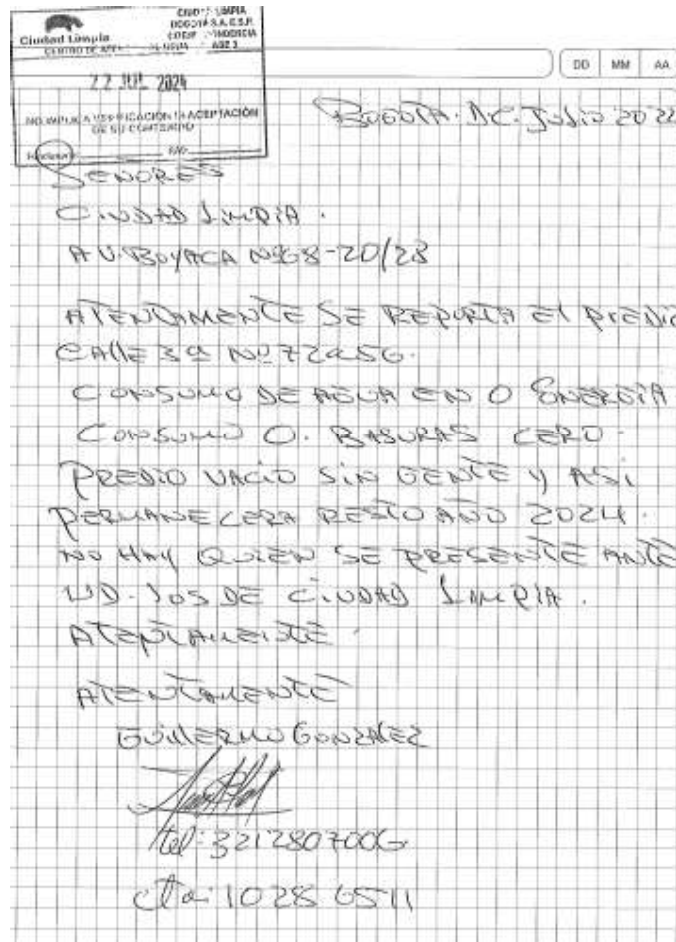 Ciudad Limpia
CIUDAD LIMPIA
BOGOTÁ S.A. E.S.P.
22 JUL 2024
NO IMPLICA VERIFICACIÓN NI ACEPTACIÓN
DE SU CONTENIDO
DD MM AA
BOGOTA. D.C. JULIO 2022
SEÑORES
CIUDAD LIMPIA.
AV. BOYACA Nº 68-20/28
ATENTAMENTE SE REPORTA El PREDIO
CAllE 3a Nº 72a56.
CONSUMO DE AGUA EN 0 ENERGIA
CONSUMO 0. BASURAS CERO-
PREDIO VACIO SIN GENTE Y ASI
PERMANECERA RESTO AÑO 2024.
NO HAY QUIEN SE PRESENTE ANTE
UD. LOS DE CIUDAD LIMPIA.
ATENTAMENTE.
ATENTAMENTE
GUILLERMO GONZALEZ
tel: 3212807006
cta: 10286511